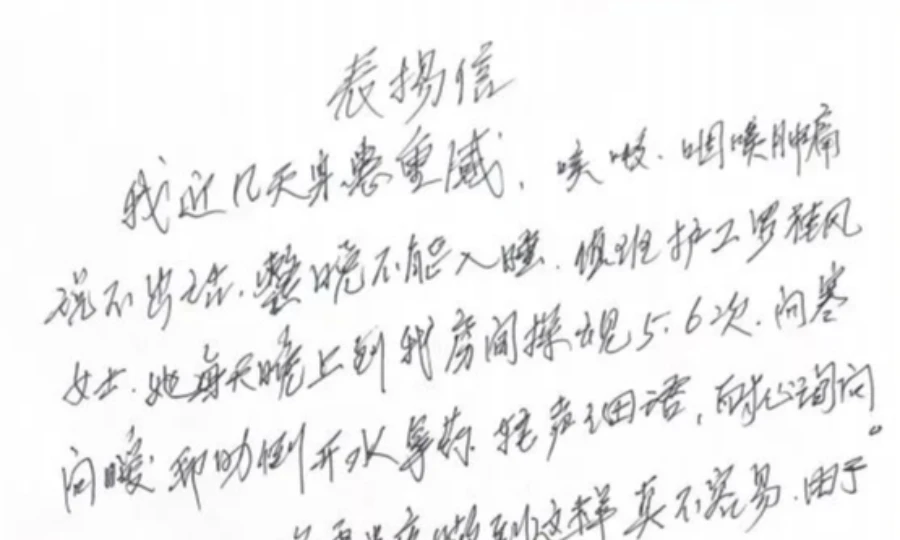 表扬信
我近几天身患重感，咳嗽．咽喉肿痛
说不出话．整晚不能入睡．值班护工罗桂凤
女士．她每天晚上到我房间探视5.6次．问寒
问暖 帮助倒开水拿药．轻声细语，耐心询问。
做到这样真不容易．由于